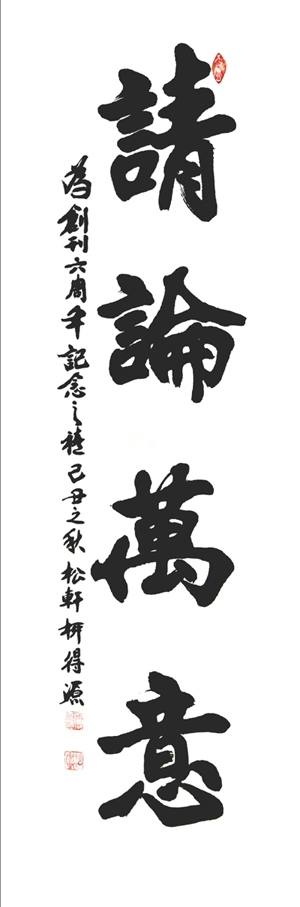 請論萬意
為創刊六周年記念之禧己丑之秋松軒柳得源